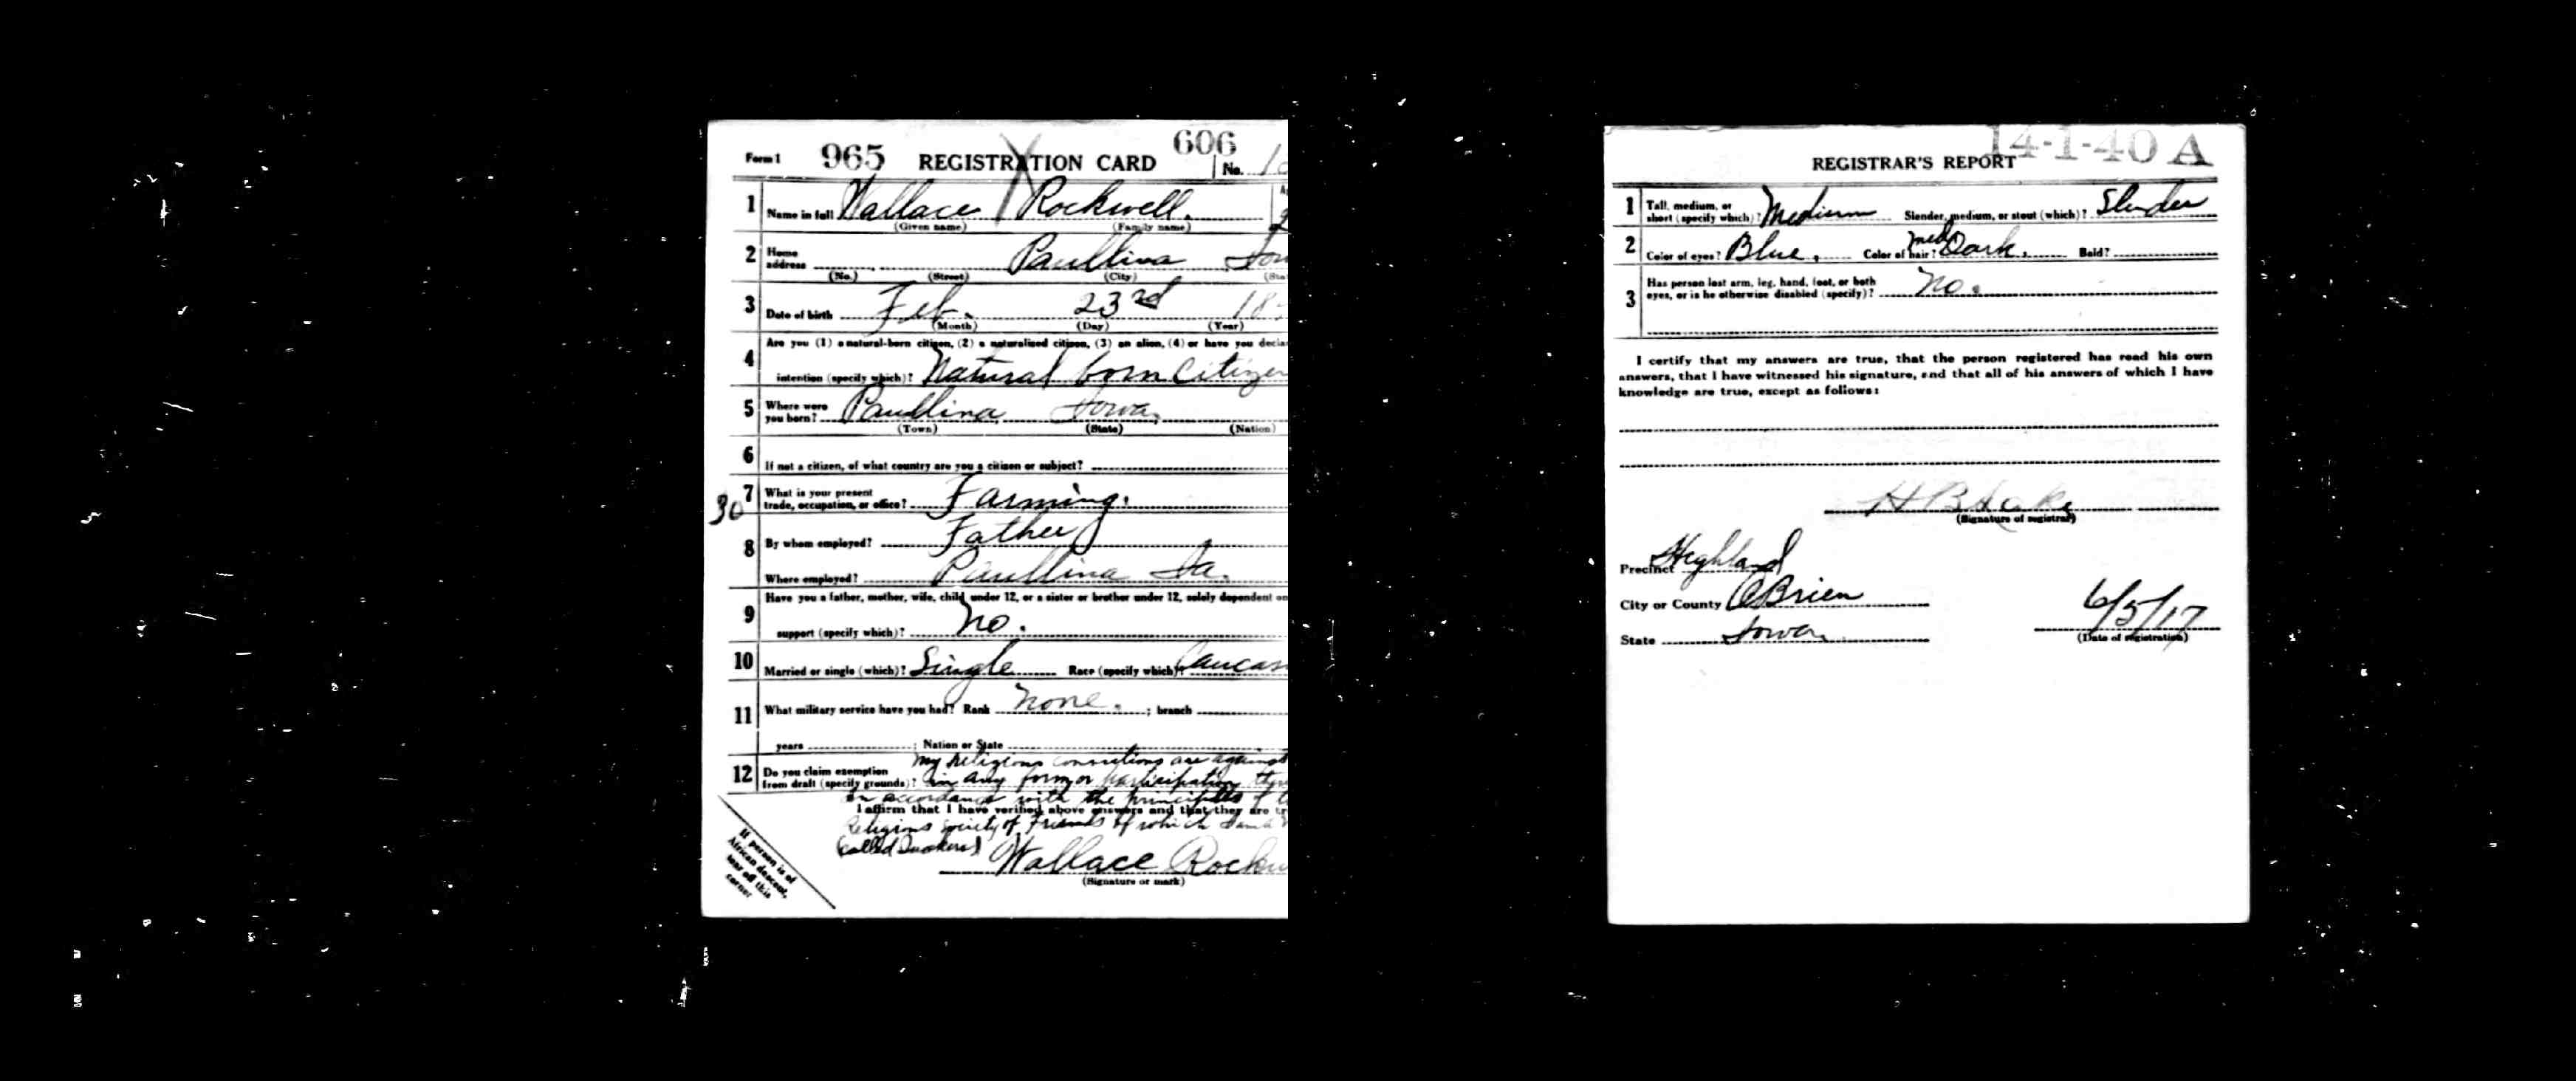 606
Form 1 965 REGISTRATION CARD No.
1 Name in full Wallace Rockwell.
(Given name) (Family name)
2 Home
address Paullina
(No.) (Street) (City)
3 Date of birth Feb. 23rd 18
(Month) (Day) (Year)
Are you (1) a natural-born citizen, (2) a naturalized citizen, (3) an alien, (4) or have you
4 intention (specify which)? Natural born Citizen
5 Where were
you born? Paullina Iowa,
(Town) (State) (Nation)
6 If not a citizen, of what country are you a citizen or subject?
30
7 What is your present
trade, occupation, or office? Farming.
8 By whom employed? Father
Where employed? Paullina Ia.
Have you a father, mother, wife, child under 12, or a sister or brother under 12, solely dependent on
9 support (specify which)? No.
10 Married or single (which)? Single Race (specify which)?
11 What military service have you had? Rank None. ; branch
years ; Nation or State
My religious convictions are against
12 Do you claim exemption
from draft (specify grounds)? in any form or participation
in accordance with the principles of
I affirm that I have verified above answers and that they are
Religious Society of Friends of which I am a
(called Quakers)
Wallace
(Signature or mark)
If person is of
African descent,
tear off this
corner
14-1-40 A
REGISTRAR'S REPORT
1 Tall, medium, or
short (specify which)? Medium Slender, medium, or stout (which)? Slender
2 Color of eyes? Blue. Color of hair? med Dark. Bald?
Has person lost arm, leg, hand, foot, or both
3 eyes, or is he otherwise disabled (specify)? No.
I certify that my answers are true, that the person registered has read his own
answers, that I have witnessed his signature, and that all of his answers of which I have
knowledge are true, except as follows:
(Signature of registrar)
Precinct Highland
City or County O'Brien
6/5/17
State Iowa
(Date of registration)